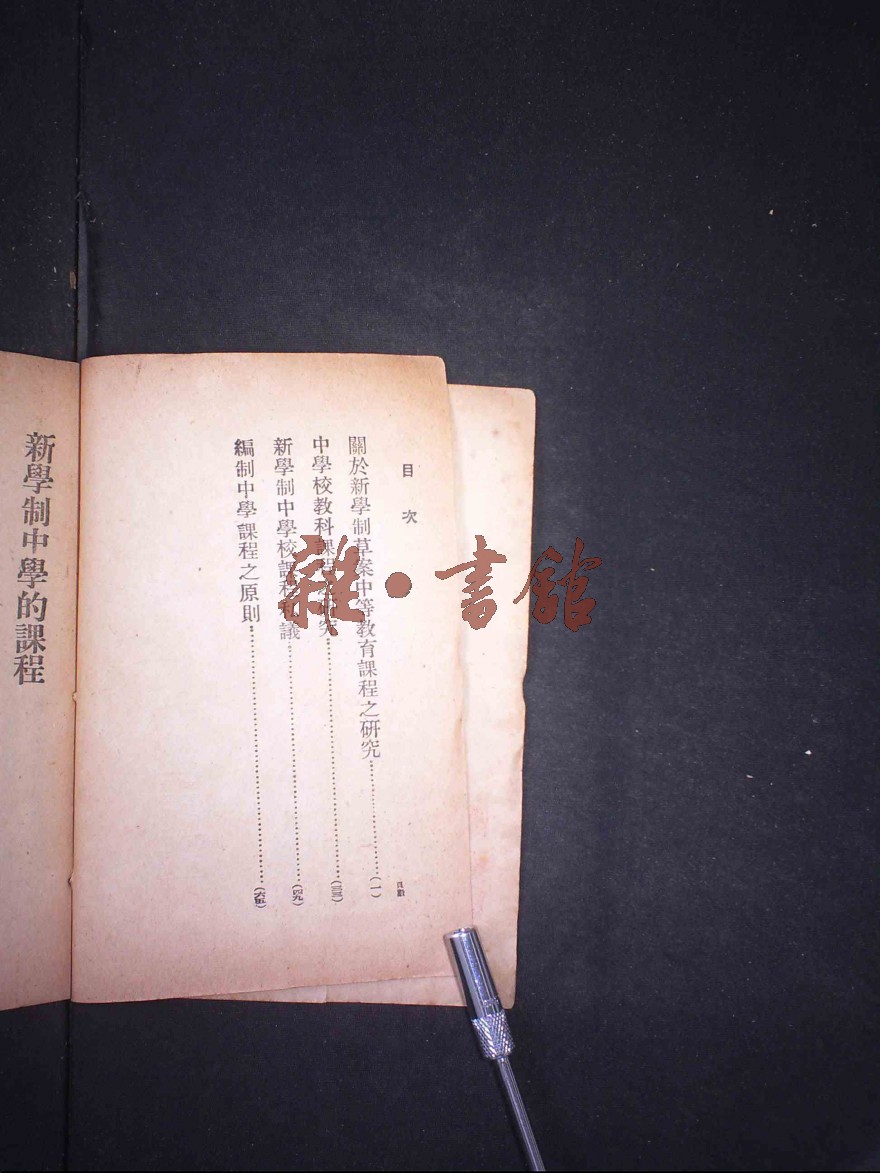 目次
頁數
關於新學制草案中等教育課程之研究……………(一)
中學校教科課程研究……………(三三)
新學制中學校課程私議……………(四九)
編制中學課程之原則……………(六五)
新學制中學的課程
雜·書館